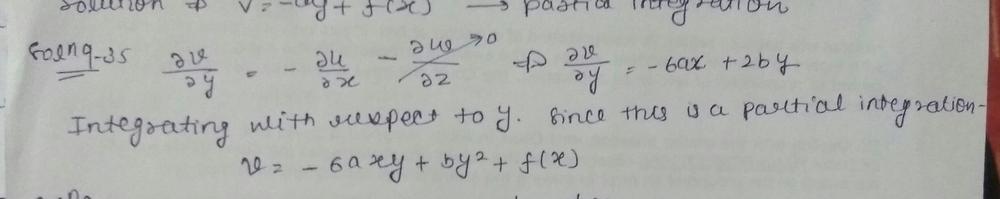 solution ⇒ v = -ay + f(x) → partial integration
Soln 9-35 ∂v/∂y = - ∂u/∂x - ∂w/∂z →0 ⇒ ∂v/∂y = -6ax + 2by
Integrating with respect to y. Since this is a partial integration-
v = - 6axy + by² + f(x)